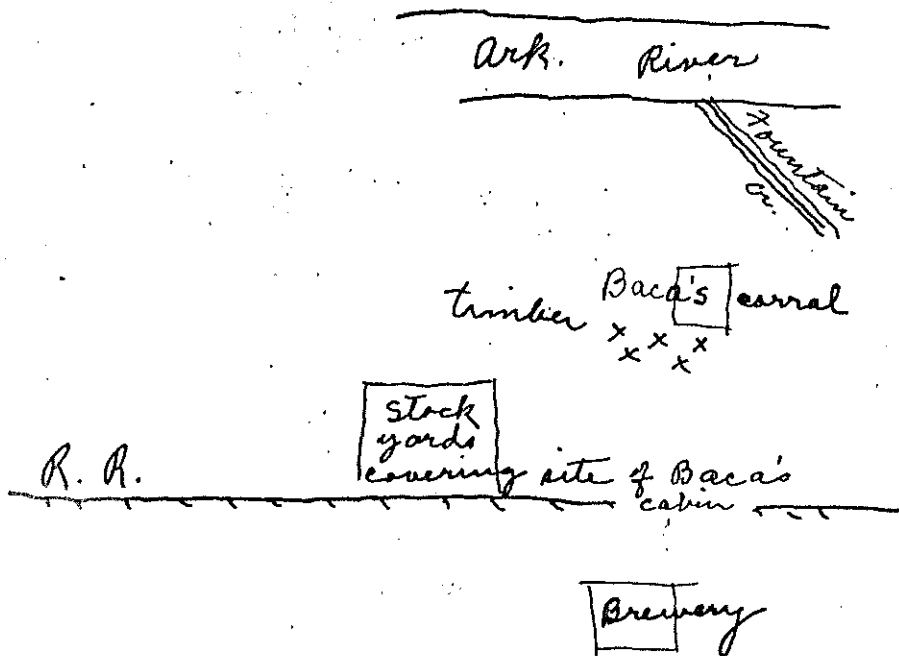 Ark. River
Fountain
cr.
Baca's corral
timber
x x x x x
stock
yards
covering site of Baca's
cabin
R. R.
Brewery